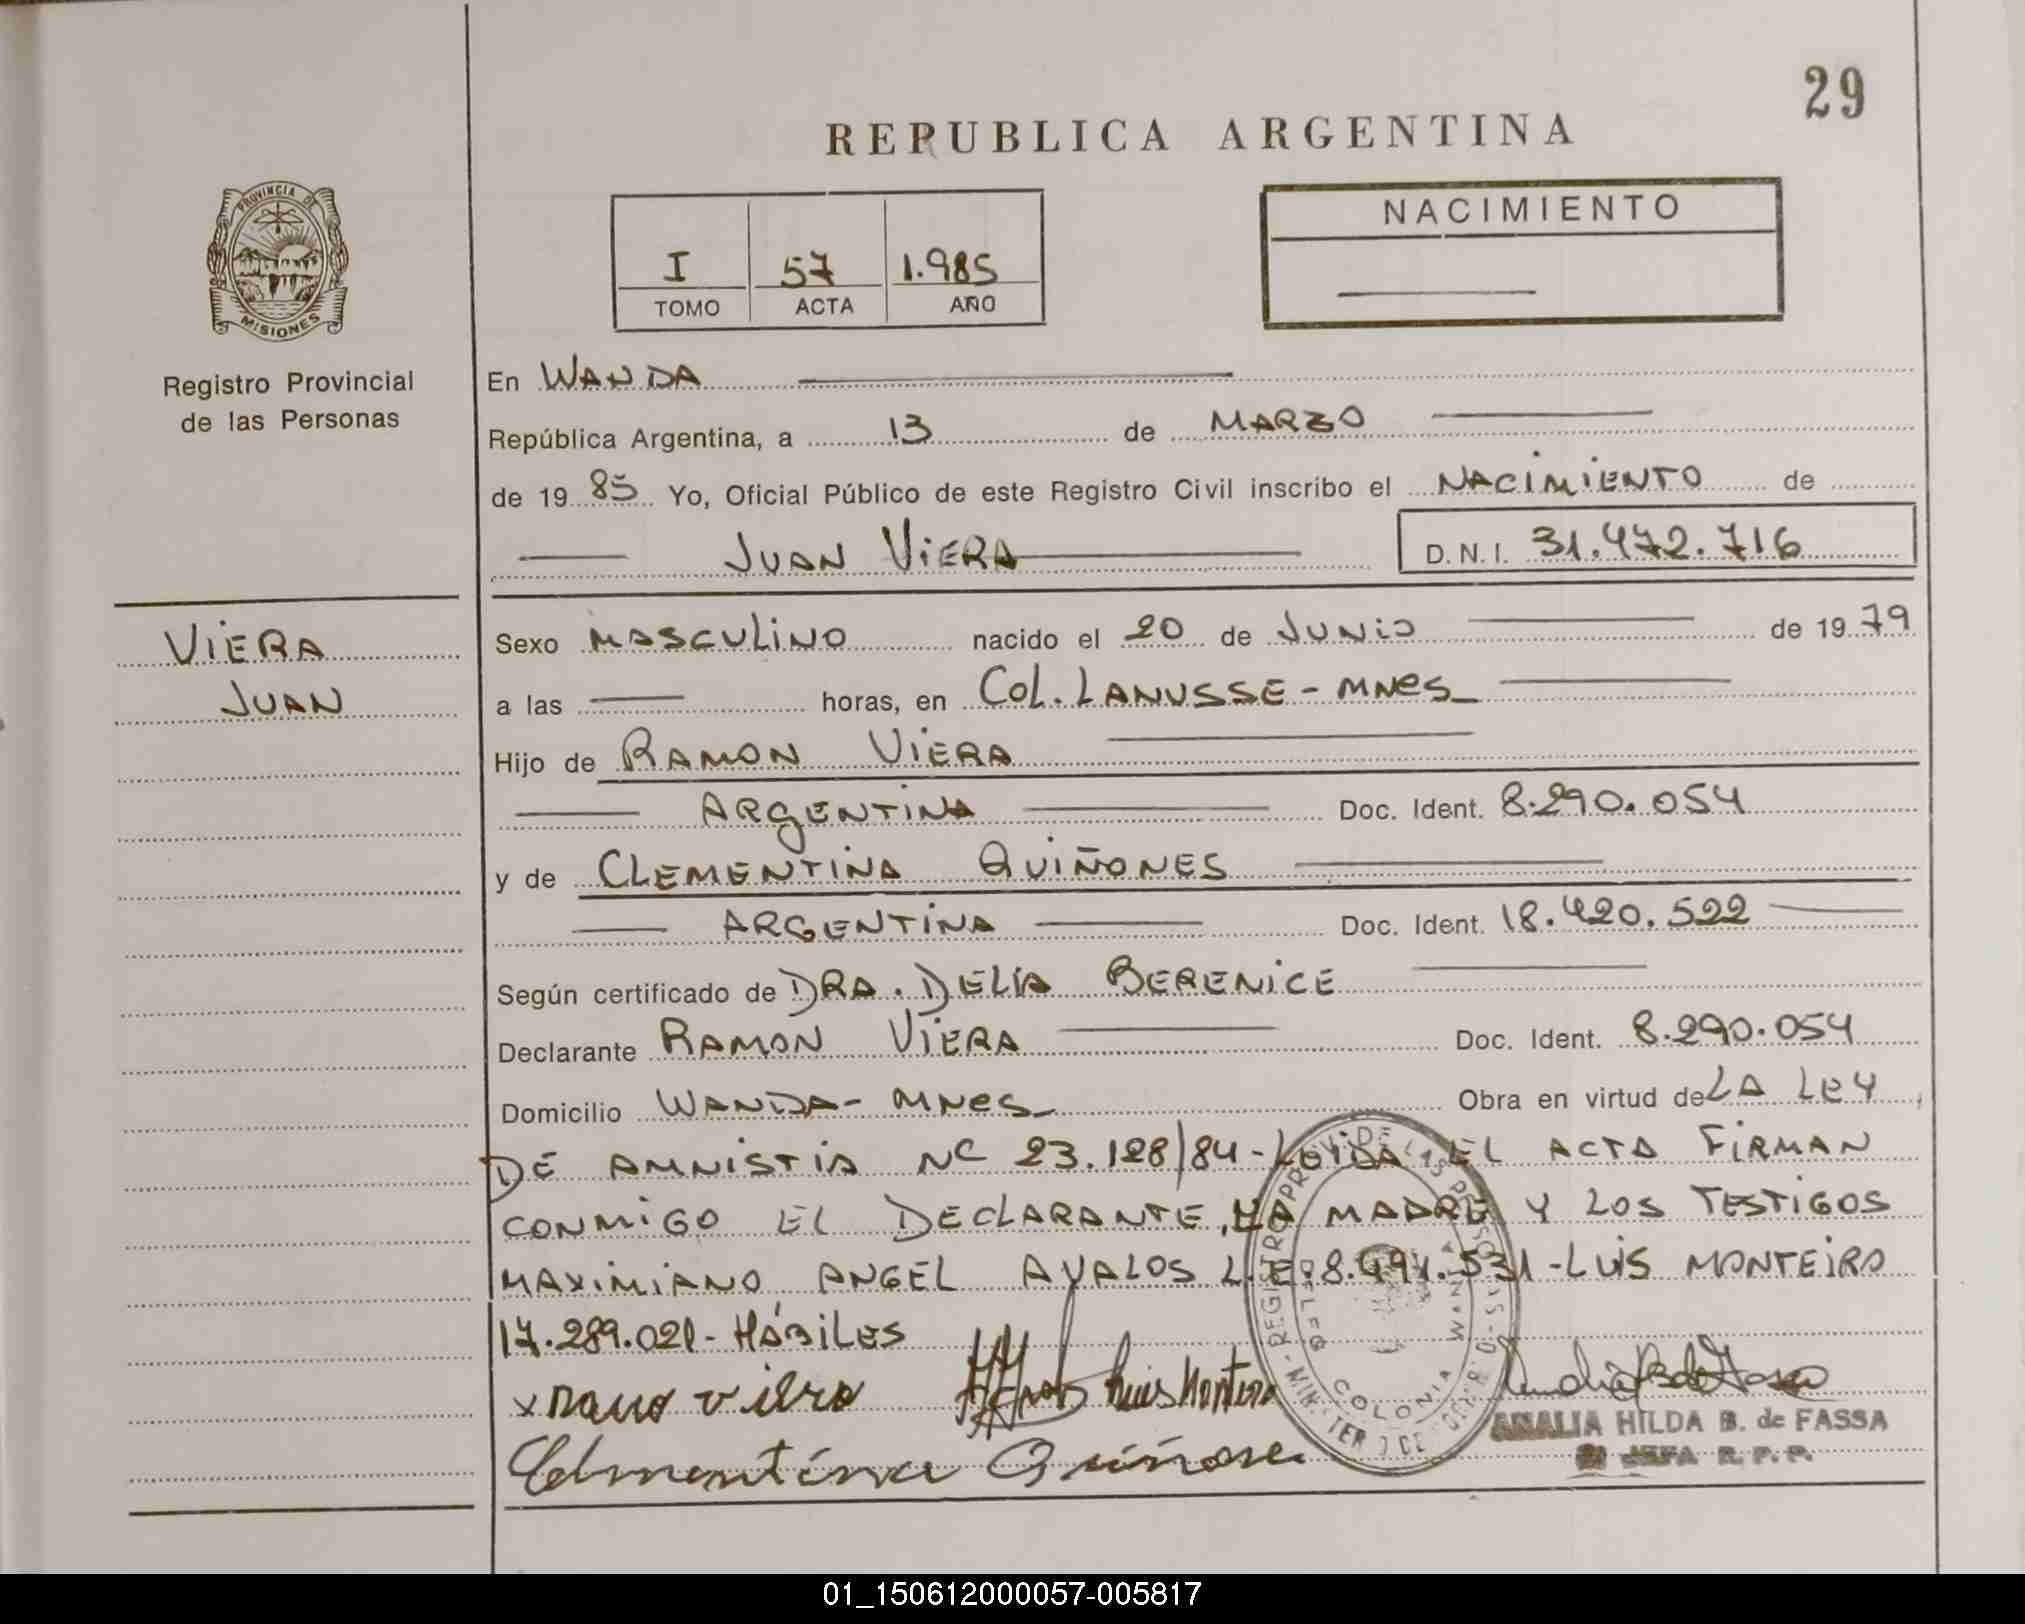 29
REPUBLICA ARGENTINA
PROVINCIA DE
MISIONES
Registro Provincial
de las Personas
I 57 1.985
TOMO ACTA AÑO
NACIMIENTO
En WANDA
República Argentina, a 13 de MARZO
de 19 85 Yo, Oficial Público de este Registro Civil inscribo el NACIMIENTO de
JUAN VIERA D.N.I. 31.472.716
VIERA
JUAN
Sexo MASCULINO nacido el 20 de JUNIO de 19 79
a las horas, en COL. LANUSSE - MNES
Hijo de RAMON VIERA
ARGENTINA Doc. Ident. 8.290.054
y de CLEMENTINA QUIÑONES
ARGENTINA Doc. Ident. 18.420.522
Según certificado de DRA. DELIA BERENICE
Declarante RAMON VIERA Doc. Ident. 8.290.054
Domicilio WANDA - MNES Obra en virtud de LA LEY
DE AMNISTIA Nº 23.128/84 - LEIDA EL ACTA FIRMAN
CONMIGO EL DECLARANTE, LA MADRE Y LOS TESTIGOS
MAXIMIANO ANGEL AVALOS L.E. 8.491.531 - LUIS MONTEIRO
17.289.021 - HÁBILES
Luis Monteiro
Clementina Quiñones
COLONIA WANDA
ANALIA HILDA B. de FASSA
JEFA R. P. P.
01_150612000057-005817